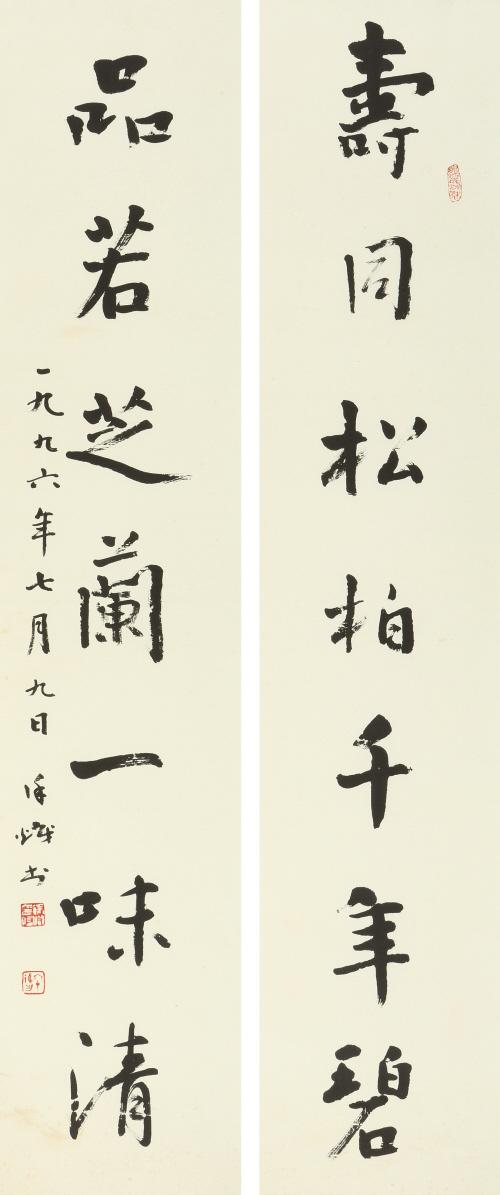 壽同松柏千年碧
品若芝蘭一味清
一九九六年七月九日
書